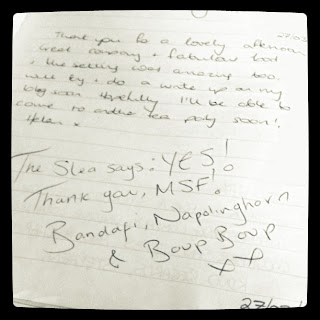 27/03
Thank you for a lovely afternoon
Great company + fabulous food
+ the setting was amazing too.
Will try + do a write up on my
blog soon. Hopefully I'll be able to
come to another tea party soon!
Helen x
The Slea says: YES!
Thank you, MSF!
Bandafi, Napolinghorn
& Boup Boup
x x
27/03/